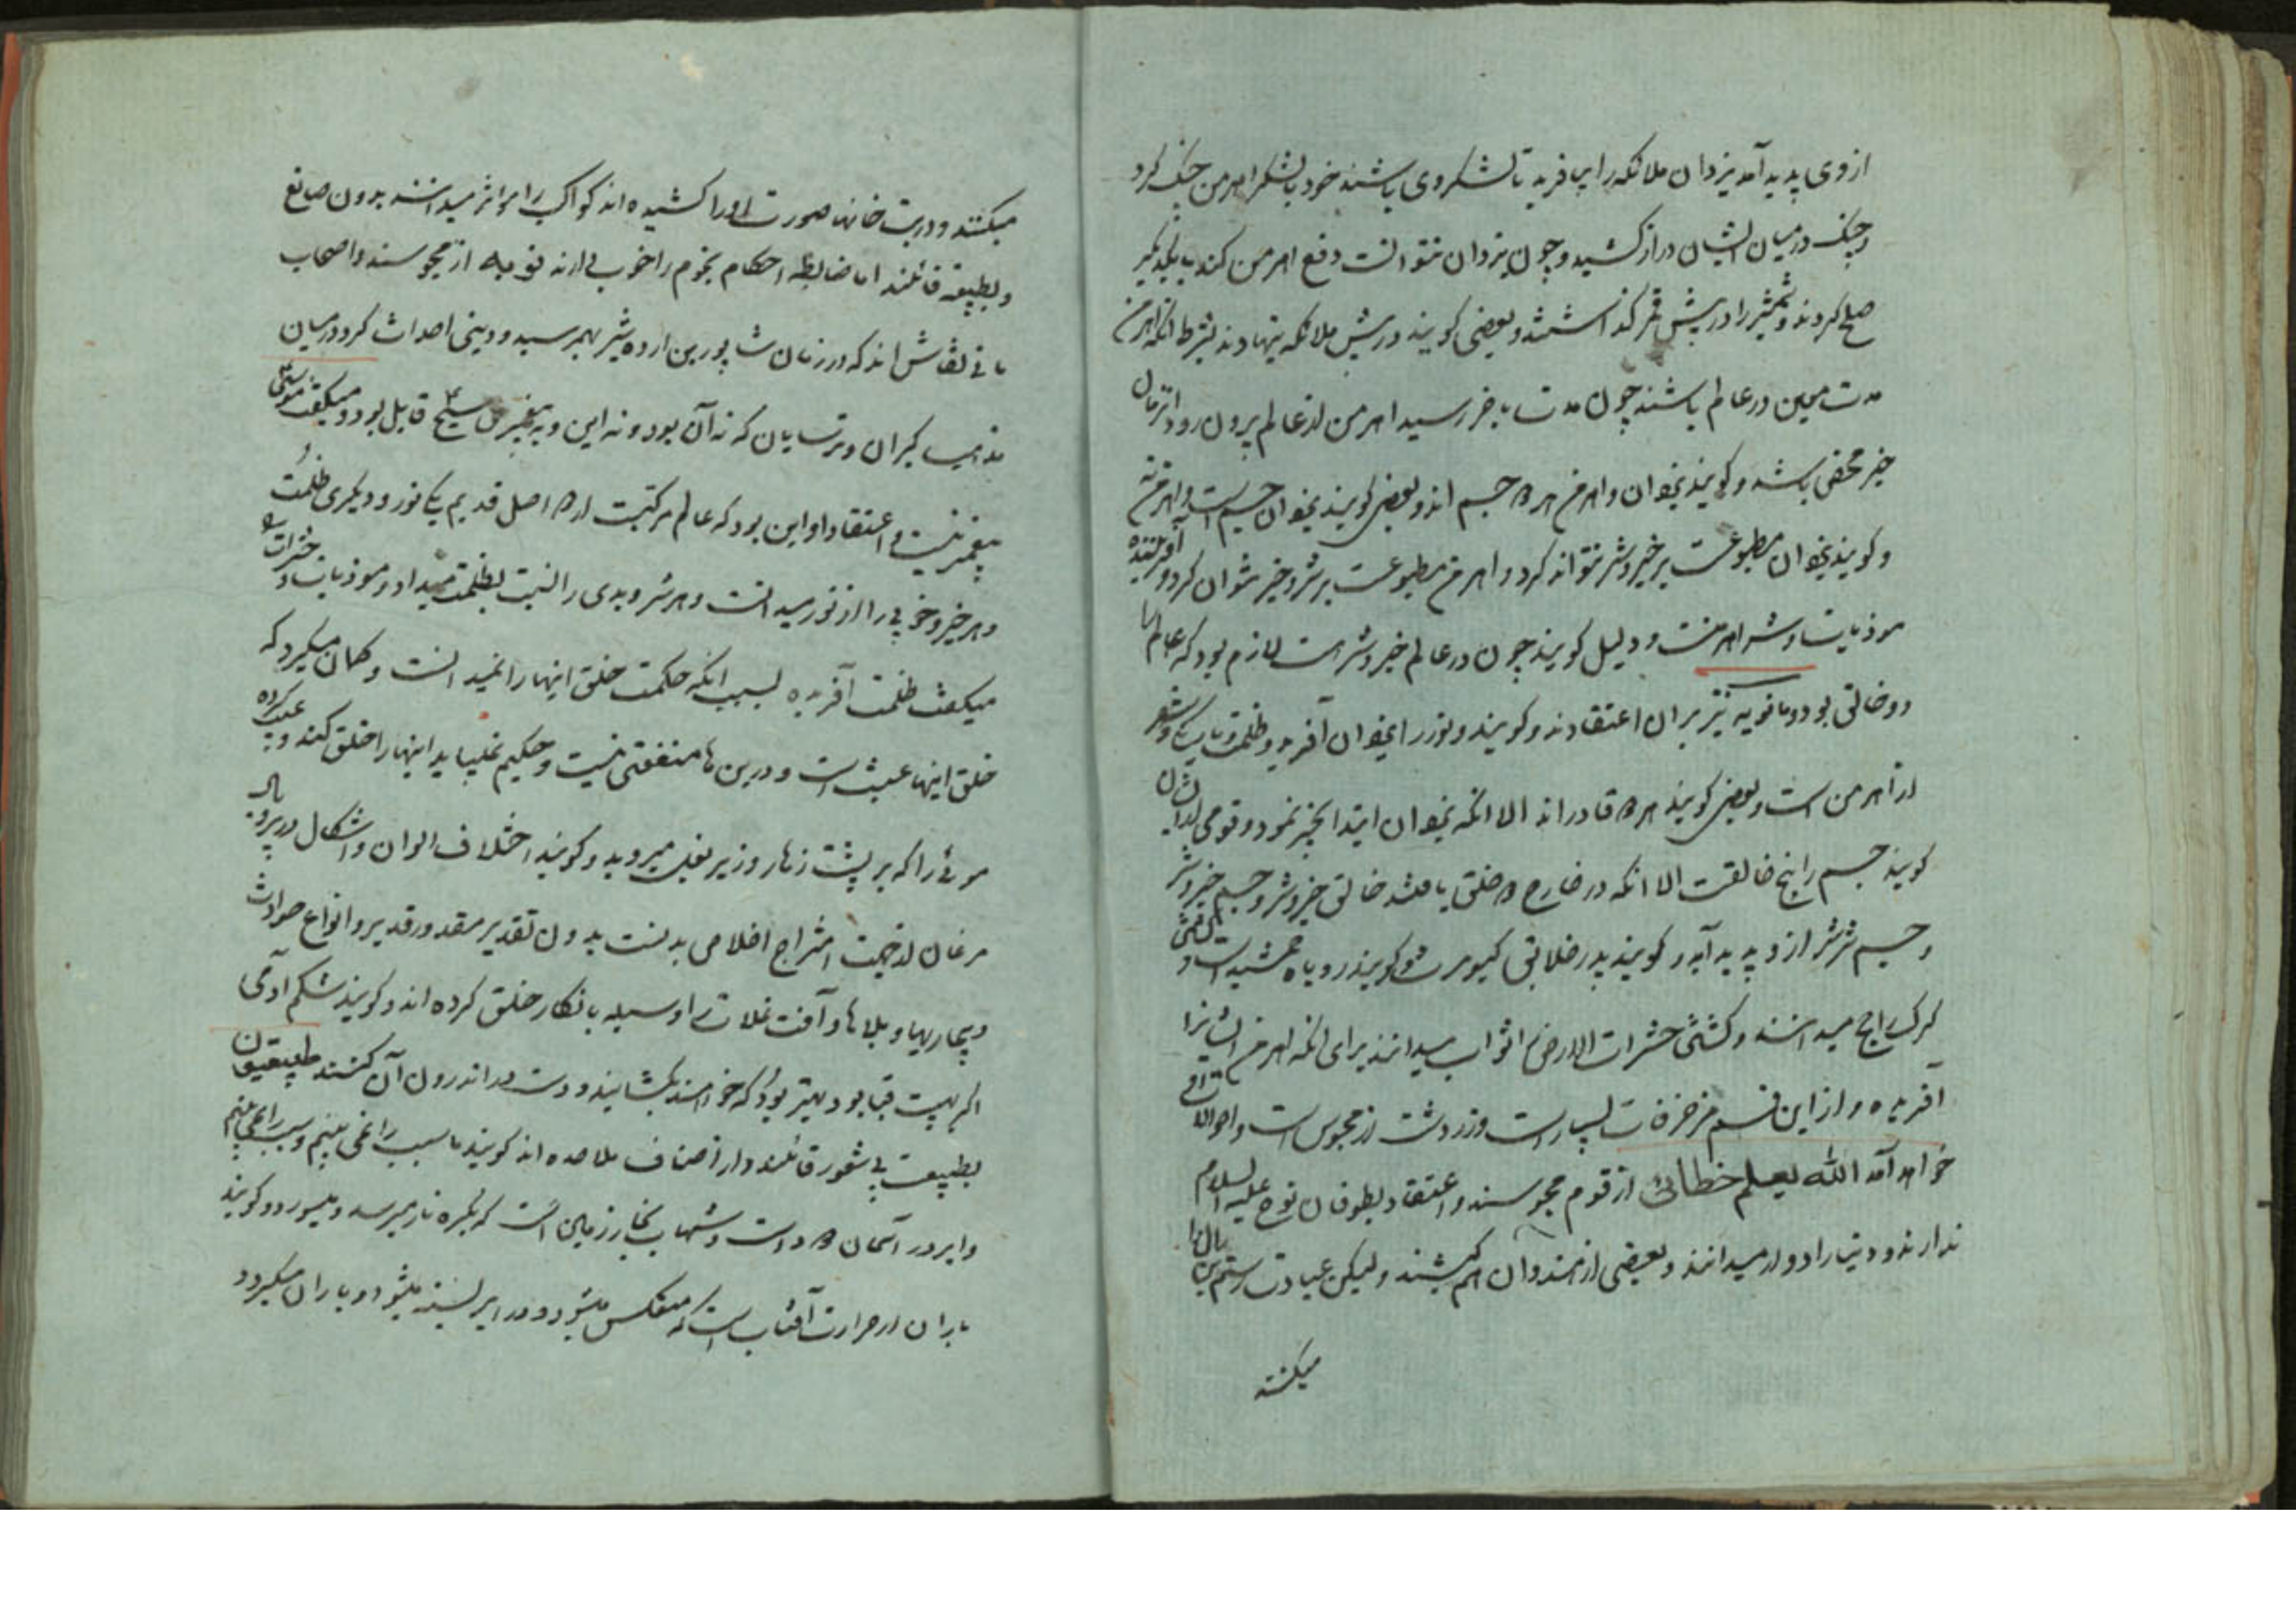 از وی پدید آمد یزدان ملائکه را بیافرید تا لشکر وی باشند خود با لشکر اهرمن جنک کرد
و جنک در میان ایشان دراز کشید و چون یزدان نتوانست دفع اهرمن کند با یکدیکر
صلح کردند و شمشیر را در پیش قمر کذاشتند و بعضی کویند در پیش ملائکه بنهادند بشرط انکه اهرمن
مدت معین در عالم باشند چون مدت باخر رسید اهرمن از عالم بیرون رود از زمان
خیر محض باشد و کویند یزدان و اهرمن هر دو جسم اند و بعضی کویند یزدان جسم است و اهرمن نه
و کویند یزدان مطبوعست بر خیر و شر نتواند کرد و اهرمن مطبوعست بر شر و خیر نتوان کرد و آفریننده
موذیات و شر اهرمنست و دلیل کویند چون در عالم خیر و شر هست لازم بود که عالم را
دو خالق بود و مانویه نیز بران اعتقادند و کویند و نور را یزدان آفرید و ظلمت
از اهرمن است و بعضی کویند هر دو قادر اند الا انکه یزدان ابتدا بخیر نمود و قومی از ایشان
کویند جسم را هیچ خالقست الا انکه در خارج دو خلق یافتند خالق خیر و شر و جسم خیر و شر
و جسم شر شر از و پدید آید و کویند پدر خلایق کیومرث و کویند روباه جمشید است و
کرک را میدانند و کشتن حشرات الارض را ثواب میدانند برای انکه اهرمن ایشانرا
آفریده و از این قسم مزخرفات بسیار است و زردشت از مجوس است و احوالات او
خواهد آمد الله یعلم خطائی از قوم مجوسند و اعتقاد بطوفان نوح علیه السلام
ندارند و دنیا را دوار میدانند و بعضی از هندوان هم کیشند ولیکن عبادت رستم بن زال را
میکنند
میکنند و در بت خانها صورت او را کشیده اند کواکب را مؤثر میدانند بدون صانع
و بطبیعه قائلند اما ضابطه احکام نجوم را خوب دارند نوبه از مجوسند و اصحاب
مانی نقاش اند که در زمان شاپور بن اردشیر بهم رسید و دینی احداث کرد در میان
مذهب کبران و ترسایان که نه آن بود و نه این و به پیغمبری مسیح قایل بود و میکفت موسی
پیغمبر نیست و اعتقاد او این بود که عالم مرکبست از دو اصل قدیم یکی نور و دیکری ظلمت
و هر خیر و خوبی را از نور میدانست و هر شر و بدی را نسبت بظلمت میداد و موذیات و حشرات را
میکفت ظلمت آفریده بسبب انکه حکمت خلق اینها را نمیدانست و کمان میکرد که
خلق اینها عبث است و درین ها منفعتی نیست و حکیم نمیباید اینها را خلق کند و عیب کرده
موئی را که بر پشت زهار و زیر بغل میروید و کویند اختلاف الوان و اشکال در پر و بال
مرغان از جهت امتزاج اخلاص بدنست بدون تقدیر مقدور قدیر و انواع حوادث
و بیماریها و بلاها و آفت غلات را وسیله بانکار خلق کرده اند و کویند شکم آدمی
اکر بهیئت قبا بود بهتر بود که خواستند بکشایند و دست در اندرون آن کنند طبیعیون
بطبیعت بی شعور قائلند و از اصناف ملاحده اند کویند ما سبب را نمی بینیم
و ابر در آسمان دود است و شهاب بخار زمین است که بکره نار میرسد و میسوزد و کویند
باران از حرارت آفتاب است که منعکس میشود و در ابر بسته میشود و باران میکردد